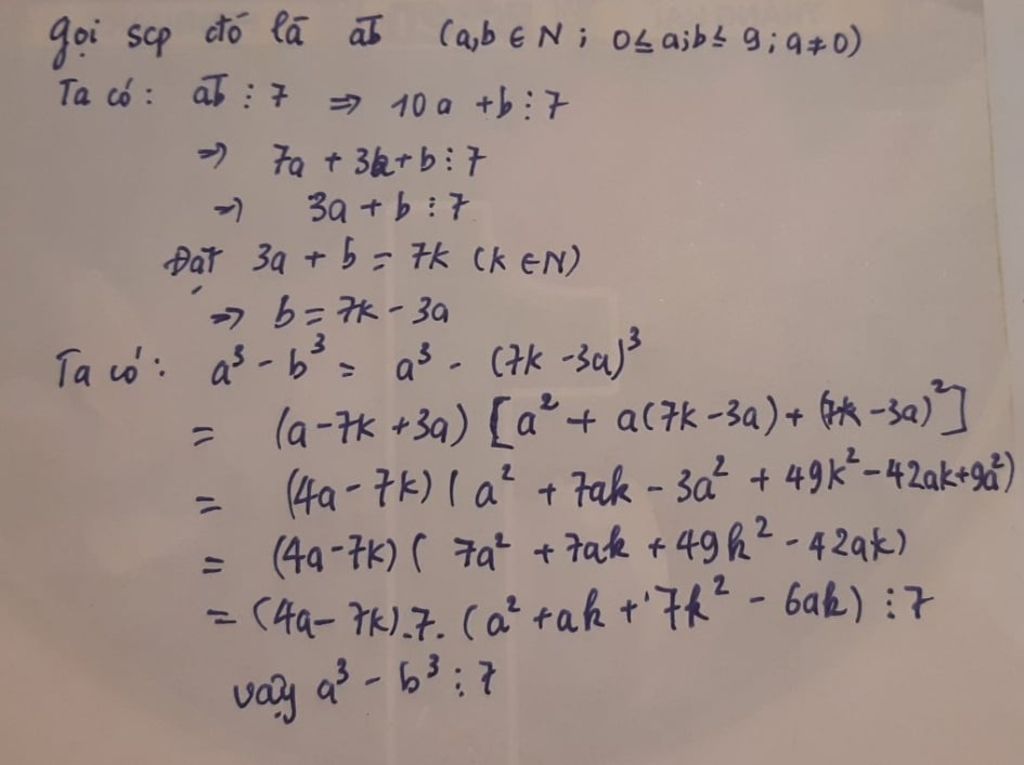 Gọi scp đó là a̅b̅ (a,b ∈ N; 0 ≤ a;b ≤ 9; a ≠ 0)
Ta có: a̅b̅ ⋮ 7 ⇒ 10a + b ⋮ 7
⇒ 7a + 3a + b ⋮ 7
⇒ 3a + b ⋮ 7
Đặt 3a + b = 7k (k ∈ N)
⇒ b = 7k - 3a
Ta có: a³ - b³ = a³ - (7k - 3a)³
= (a - 7k + 3a) [a² + a(7k - 3a) + (7k - 3a)²]
= (4a - 7k) (a² + 7ak - 3a² + 49k² - 42ak + 9a²)
= (4a - 7k) ( 7a² + 7ak + 49k² - 42ak)
= (4a - 7k).7.(a² + ak + 7k² - 6ak) ⋮ 7
vậy a³ - b³ ⋮ 7